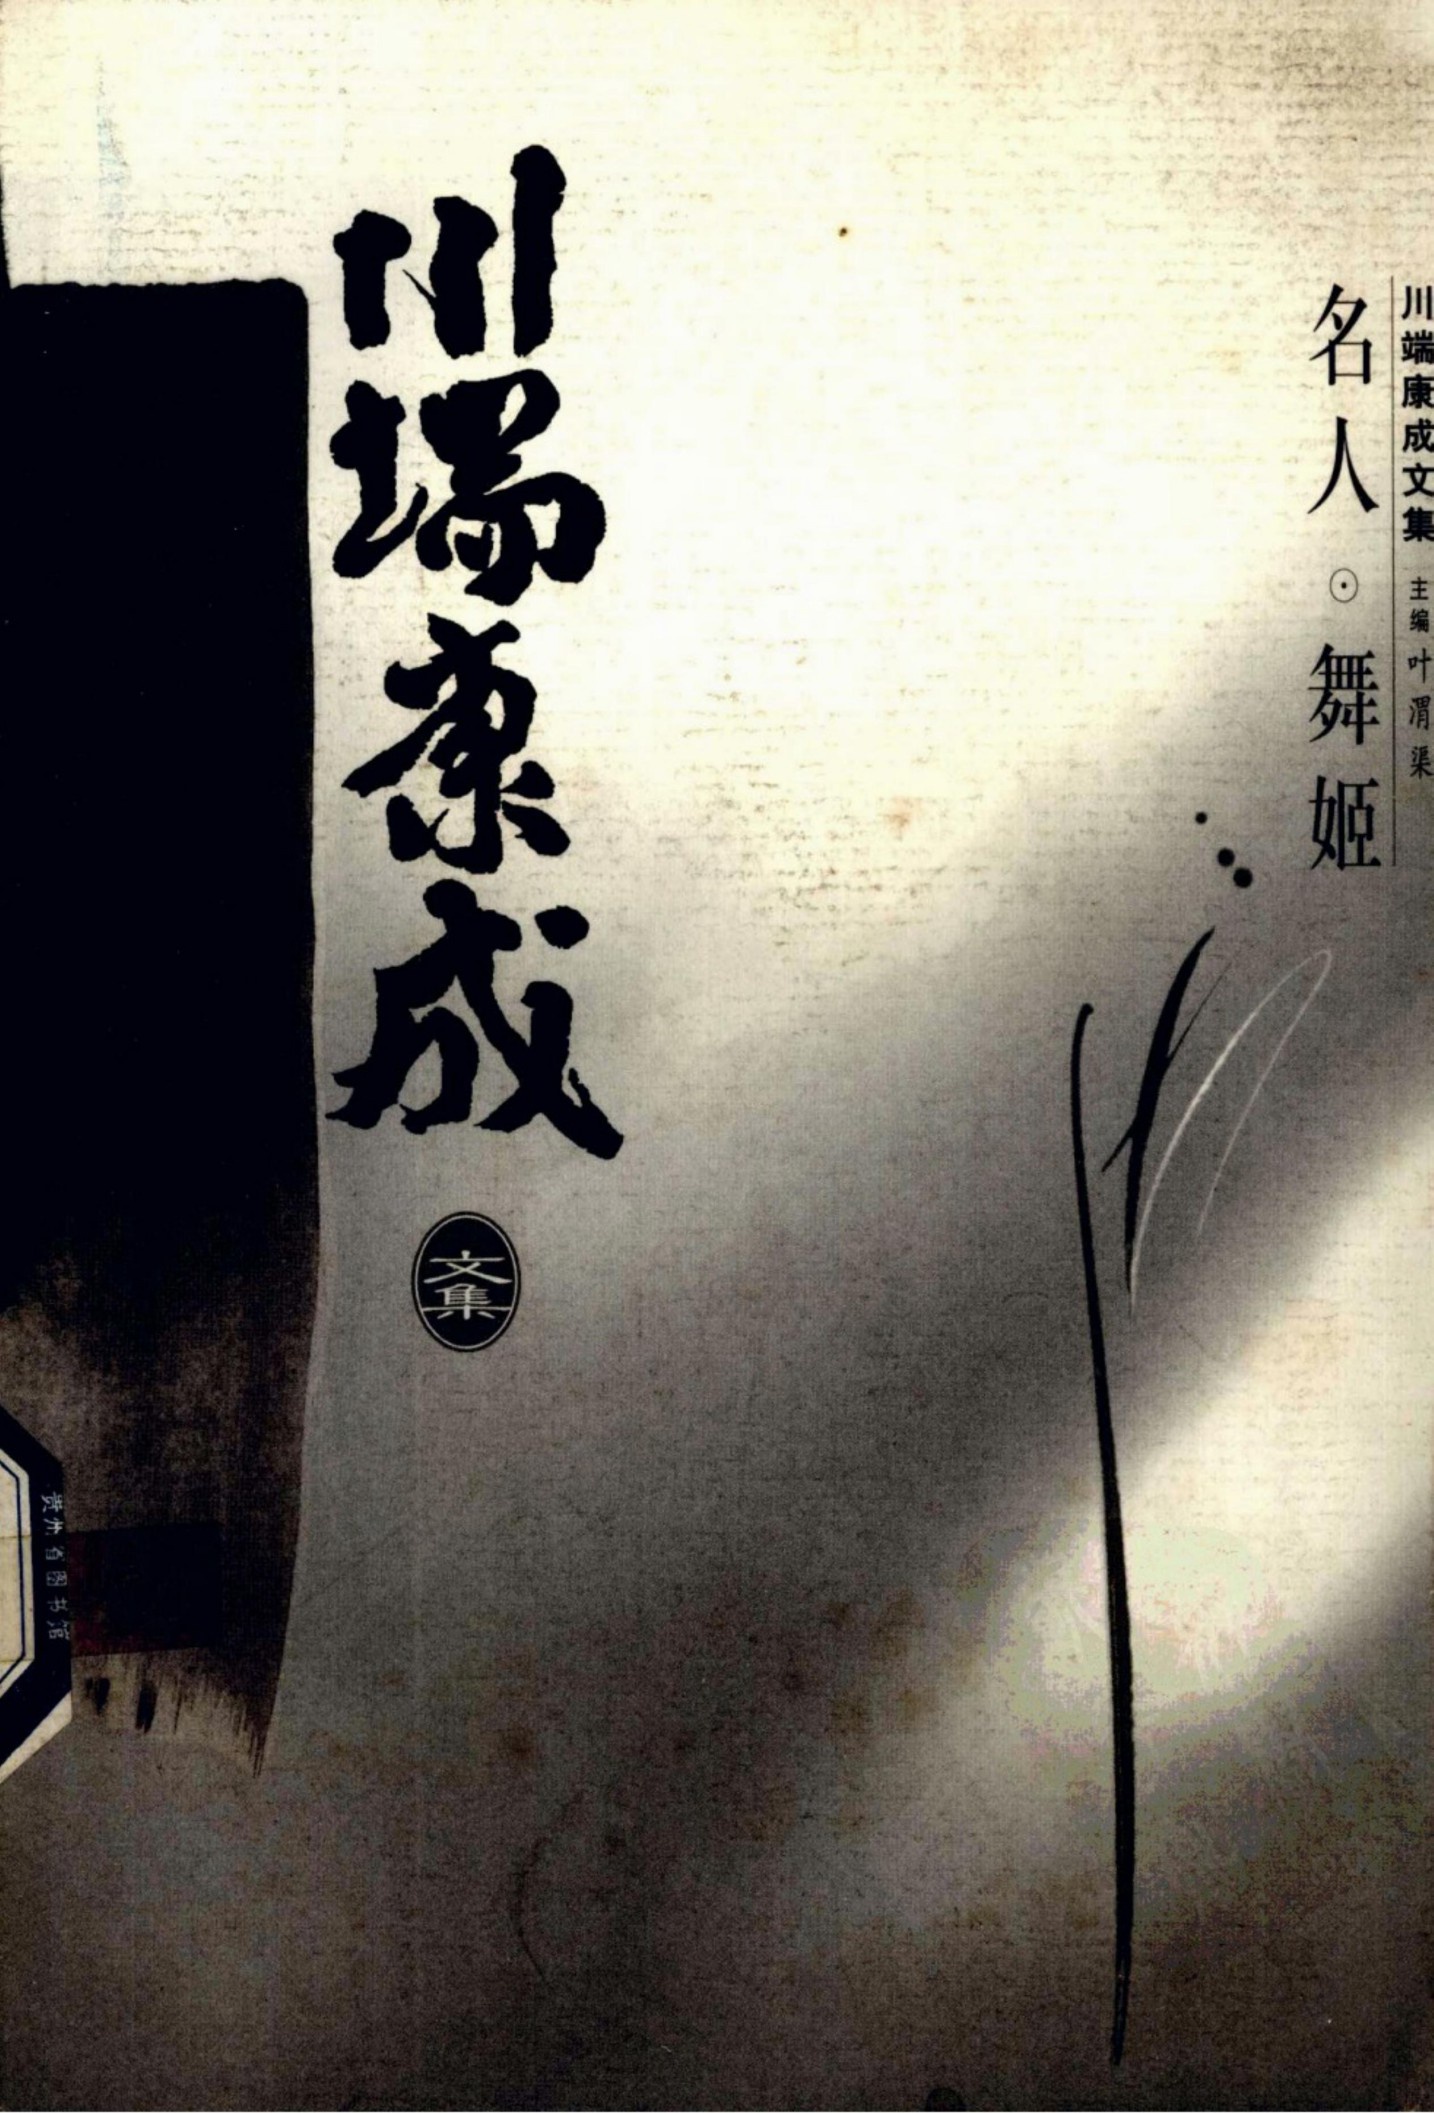 川端康成文集
主编 叶渭渠
名人⊙舞姬
川端康成
文集
贵州省图书馆